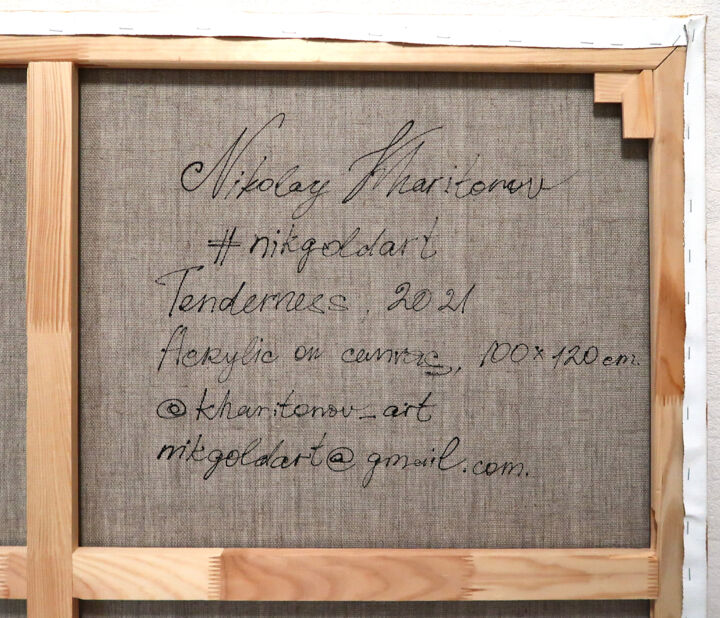 Nikolay Kharitonov
#nikgoldart
Tenderness, 2021
Acrylic on canvas, 100×120 cm.
@kharitonov_art
nikgoldart@gmail.com.